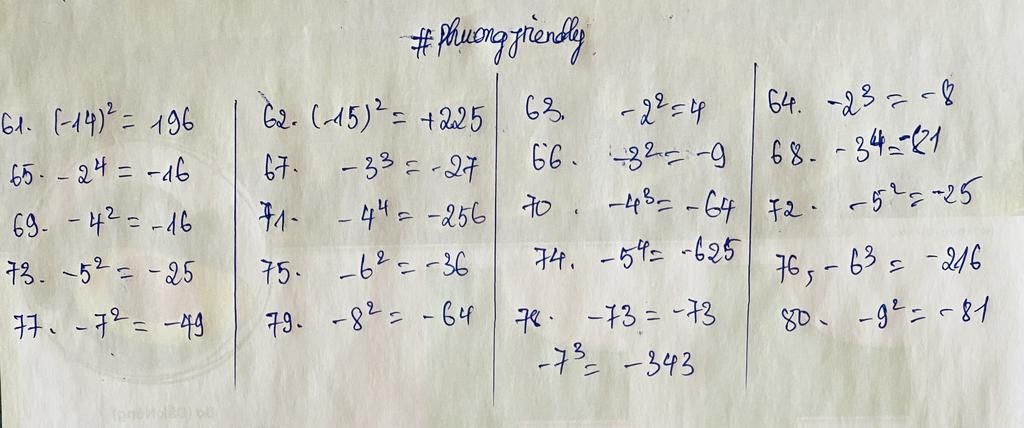 #phuongfriendly
61. (-14)² = 196
65. -2⁴ = -16
69. -4² = -16
73. -5² = -25
77. -7² = -49
62. (-15)² = +225
67. -3³ = -27
71. -4⁴ = -256
75. -6² = -36
79. -8² = -64
63. -2² = 4
66. -3² = -9
70. -4³ = -64
74. -5⁴ = -625
78. -73 = -73
-7³ = -343
64. -2³ = -8
68. -3⁴ = -81
72. -5² = -25
76, -6³ = -216
80. -9² = -81